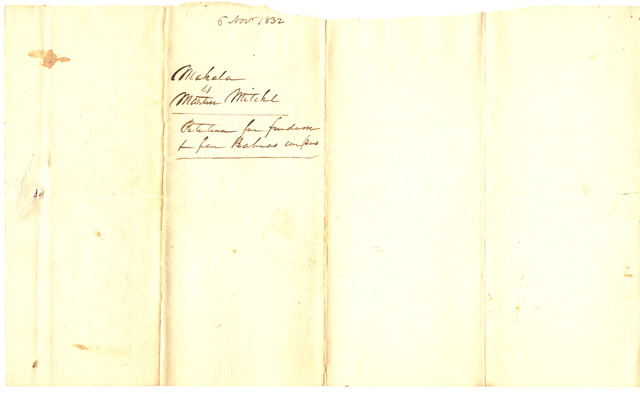 6 Novr 1832
Mahala
vs
Martin Mitchl
Petition for freedom
& for Habeas corpus